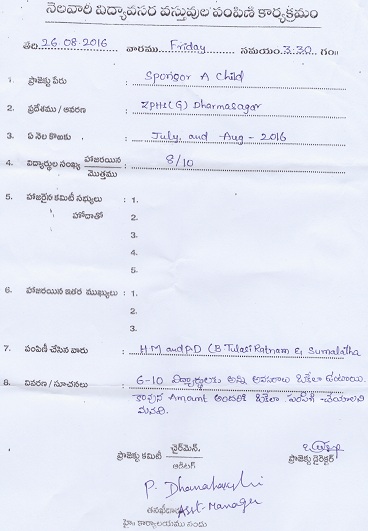 నెలవారి విద్యావసర వస్తువుల పంపిణి కార్యక్రమం
తేది 26.08.2016 వారము Friday సమయం 3.30 గం॥
1. ప్రాజెక్టు పేరు : Sponsor A Child
2. ప్రదేశము / ఆవరణ : ZPHS(G) Dharmasagar
3. ఏ నెల కొఱకు : July and Aug - 2016
4. విద్యార్థుల సంఖ్య హాజరయిన / మొత్తము : 8/10
5. హాజరైన కమిటీ సభ్యులు : 1.
హోదాతో 2.
3.
4.
5.
6. హాజరయిన ఇతర ముఖ్యులు : 1.
2.
3.
7. పంపిణీ చేసిన వారు : HM and PD (B Tulasi Ratnam & Sumalatha
8. వివరణ / సూచనలు : 6-10 విద్యార్థులకు అన్ని అవసరాలు ఒకేలా ఉంటాయి.
కావున Amount అందరికి ఒకేలా పంపిణి చేయాలని
మనవి.
ప్రాజెక్టు కమిటి చైర్మెన్.
ఆడిటర్
ప్రాజెక్టు డైరెక్టర్
P. Dhanalaxmi
తనిఖీదారు Asst-Manager
హైం కార్యాలయము నందు